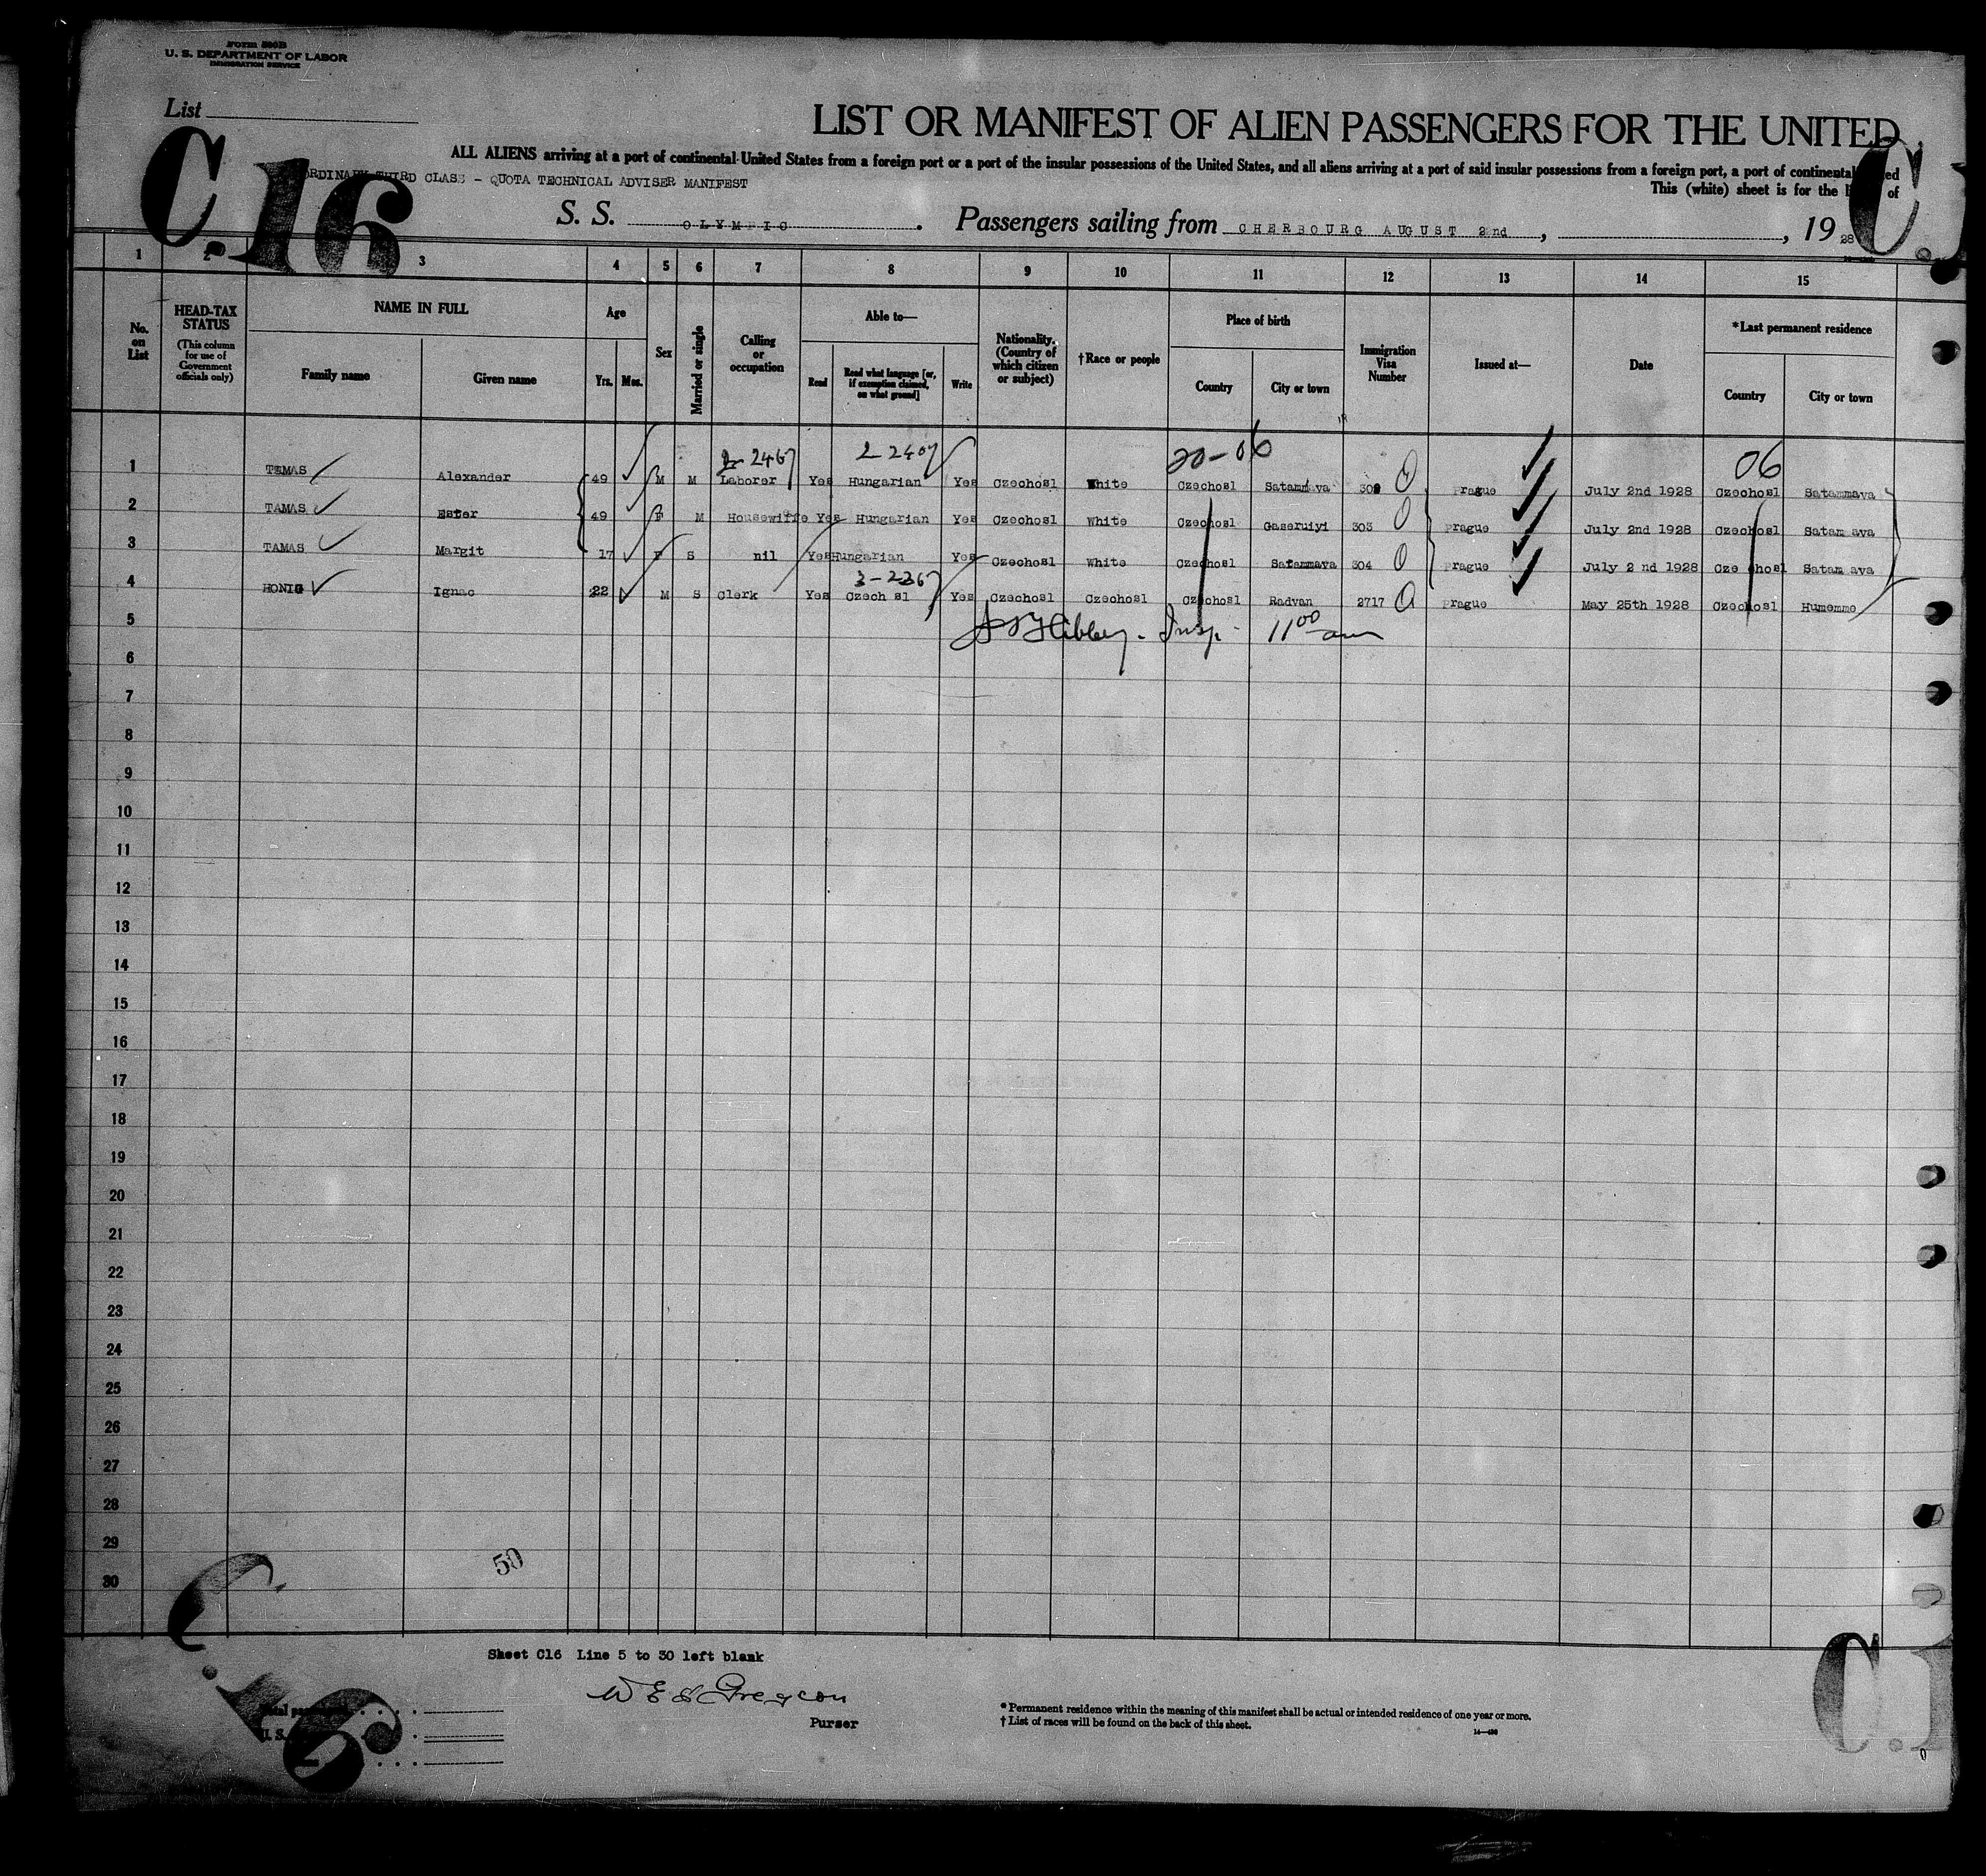 Form 500B
U. S. DEPARTMENT OF LABOR
IMMIGRATION SERVICE
List
C.16
LIST OR MANIFEST OF ALIEN PASSENGERS FOR THE UNITED
ALL ALIENS arriving at a port of continental United States from a foreign port or a port of the insular possessions of the United States, and all aliens arriving at a port of said insular possessions from a foreign port, a port of continental
ORDINARY THIRD CLASS - QUOTA TECHNICAL ADVISER MANIFEST
This (white) sheet is for the of
S. S. OLYMPIC. Passengers sailing from CHERBOURG AUGUST 2nd, , 1928
1 2 3 4 5 6 7 8 9 10 11 12 13 14 15
No. on List
HEAD-TAX STATUS (This column for use of Government officials only)
NAME IN FULL
Family name Given name
Age
Yrs. Mos.
Sex
Married or single
Calling or occupation
Able to—
Read Read what language [or, if exemption claimed, on what ground] Write
Nationality. (Country of which citizen or subject)
†Race or people
Place of birth
Country City or town
Immigration Visa Number
Issued at—
Date
*Last permanent residence
Country City or town
2-2467 2 2407 20-06 06
1 TEMAS Alexander 49 M M Laborer Yes Hungarian Yes Czechosl White Czechosl Satammava 302 Prague July 2nd 1928 Czechosl Satammava
2 TAMAS Ester 49 F M Housewife Yes Hungarian Yes Czechosl White Czechosl Gaseruiyi 303 Prague July 2nd 1928 Czechosl Satam ava
3 TAMAS Margit 17 F S nil Yes Hungarian Yes Czechosl White Czechosl Satammava 304 Prague July 2 nd 1928 Cze chosl Satam ava
3-2367
4 HONIG Ignac 22 M S Clerk Yes Czech sl Yes Czechosl Czechosl Czechosl Radvan 2717 Prague May 25th 1928 Czechosl Humemme
5 Insp. 11 00 am
6
7
8
9
10
11
12
13
14
15
16
17
18
19
20
21
22
23
24
25
26
27
28
29
30
50
Sheet C16 Line 5 to 30 left blank
Purser
* Permanent residence within the meaning of this manifest shall be actual or intended residence of one year or more.
† List of races will be found on the back of this sheet.
14—430